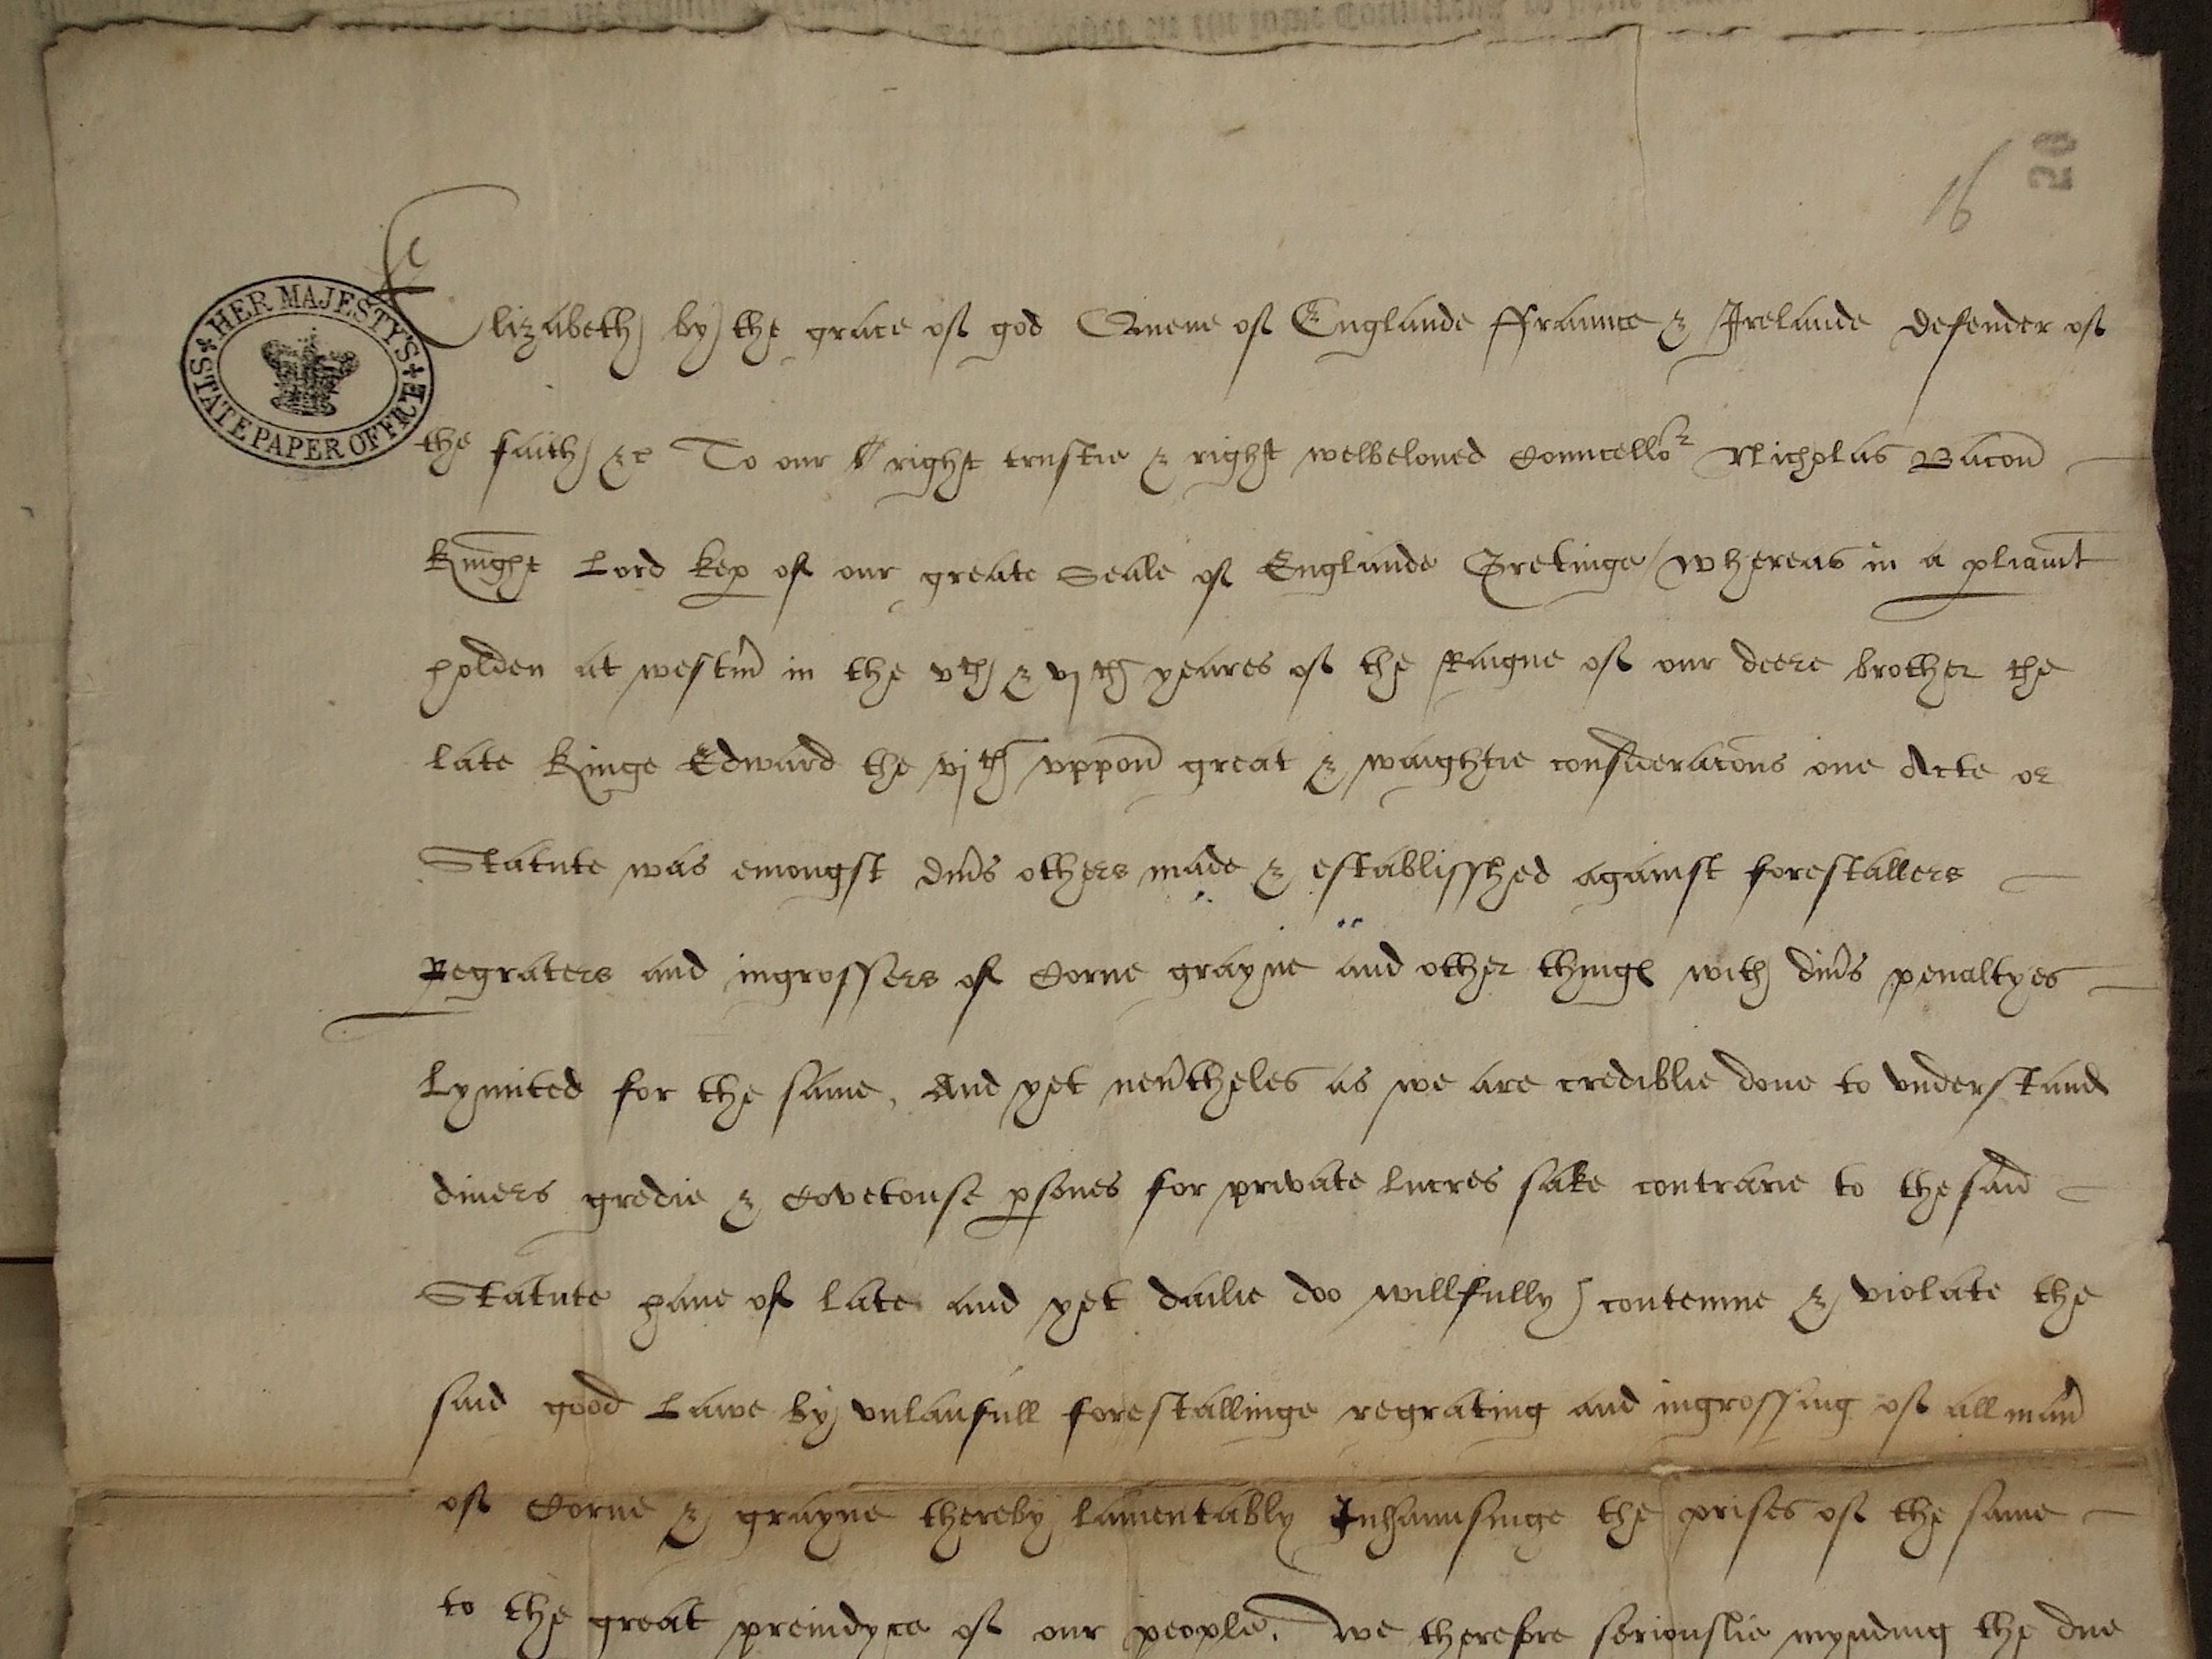 16
20
HER MAJESTY'S
STATE PAPER OFFICE
Elizabeth by the grace of god Quene of Englande ffraunce & Irelande defender of
the faith &c To our right trustie & right welbeloued Councellor Nicholas Bacon
Knight Lord kep of our greate Seale of Englande Gretinge / whereas in a pliamt
holden at westm in the vth & vjth yeares of the Raigne of our deere brother the
late Kinge Edward the vjth vppon great & waightie consideracons one Acte or
Statute was emongst divs others made & establisshed against forestallers
Regraters and ingrossers of Corne grayne and other things with divs penaltyes
Lymited for the same, And yet nevtheles as we are crediblie done to vnderstand
diuers gredie & Covetouse psones for private lucres sake contrarie to the said
Statute haue of late and yet dailie doo willfully contemne & violate the
said good Lawe by vnlaufull forestallinge regrating and ingrossing of all man
of Corne & grayne thereby lamentably Inhaunsinge the prises of the same
to the great preiudyce of our people. We therefore seriouslie mynding the due